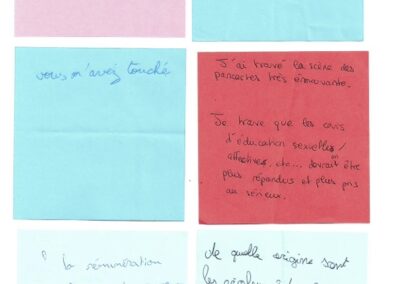 vous m'avez touché
J'ai trouvé la scène des
pancartes très émouvante.
Je trouve que les cours
d'éducation sexuelles /
affectives, etc... devrait être
plus répandus et plus pris
au sérieux.
la rémunération
de quelle origine sont
les